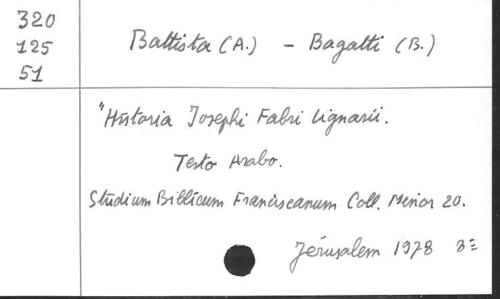 320
125
51
Battista (A.) - Bagatti (B.)
"Historia Josephi Fabri Lignarii.
Testo Arabo.
Studium Biblicum Franciscanum Coll. Minor 20.
Jérusalem 1978 8=